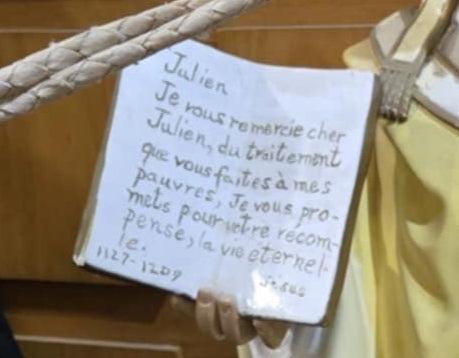 Julien
Je vous remercie cher
Julien, du traitement
que vous faites à mes
pauvres, Je vous pro-
mets pour votre récom-
pense, la vie éternel-
le.
1127-1209
Jesus